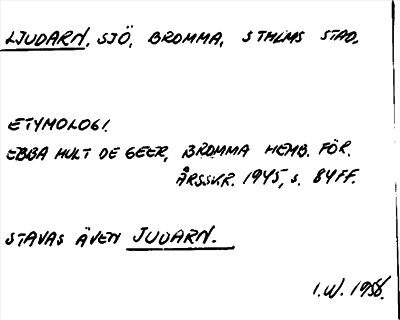 LJUDARN, SJÖ, BROMMA, STHLMS STAD.
ETYMOLOGI.
EBBA HULT DE GEER, BROMMA HEMB. FÖR.
ÅRSSKR. 1945, S. 84FF.
STAVAS ÄVEN JUDARN.
I.W. 1958.